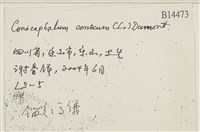 B14473
Conocephalum conicum (L.) Dumort.
四川省, 乐山市, 乐山, 土生
2004年6月
L9-5